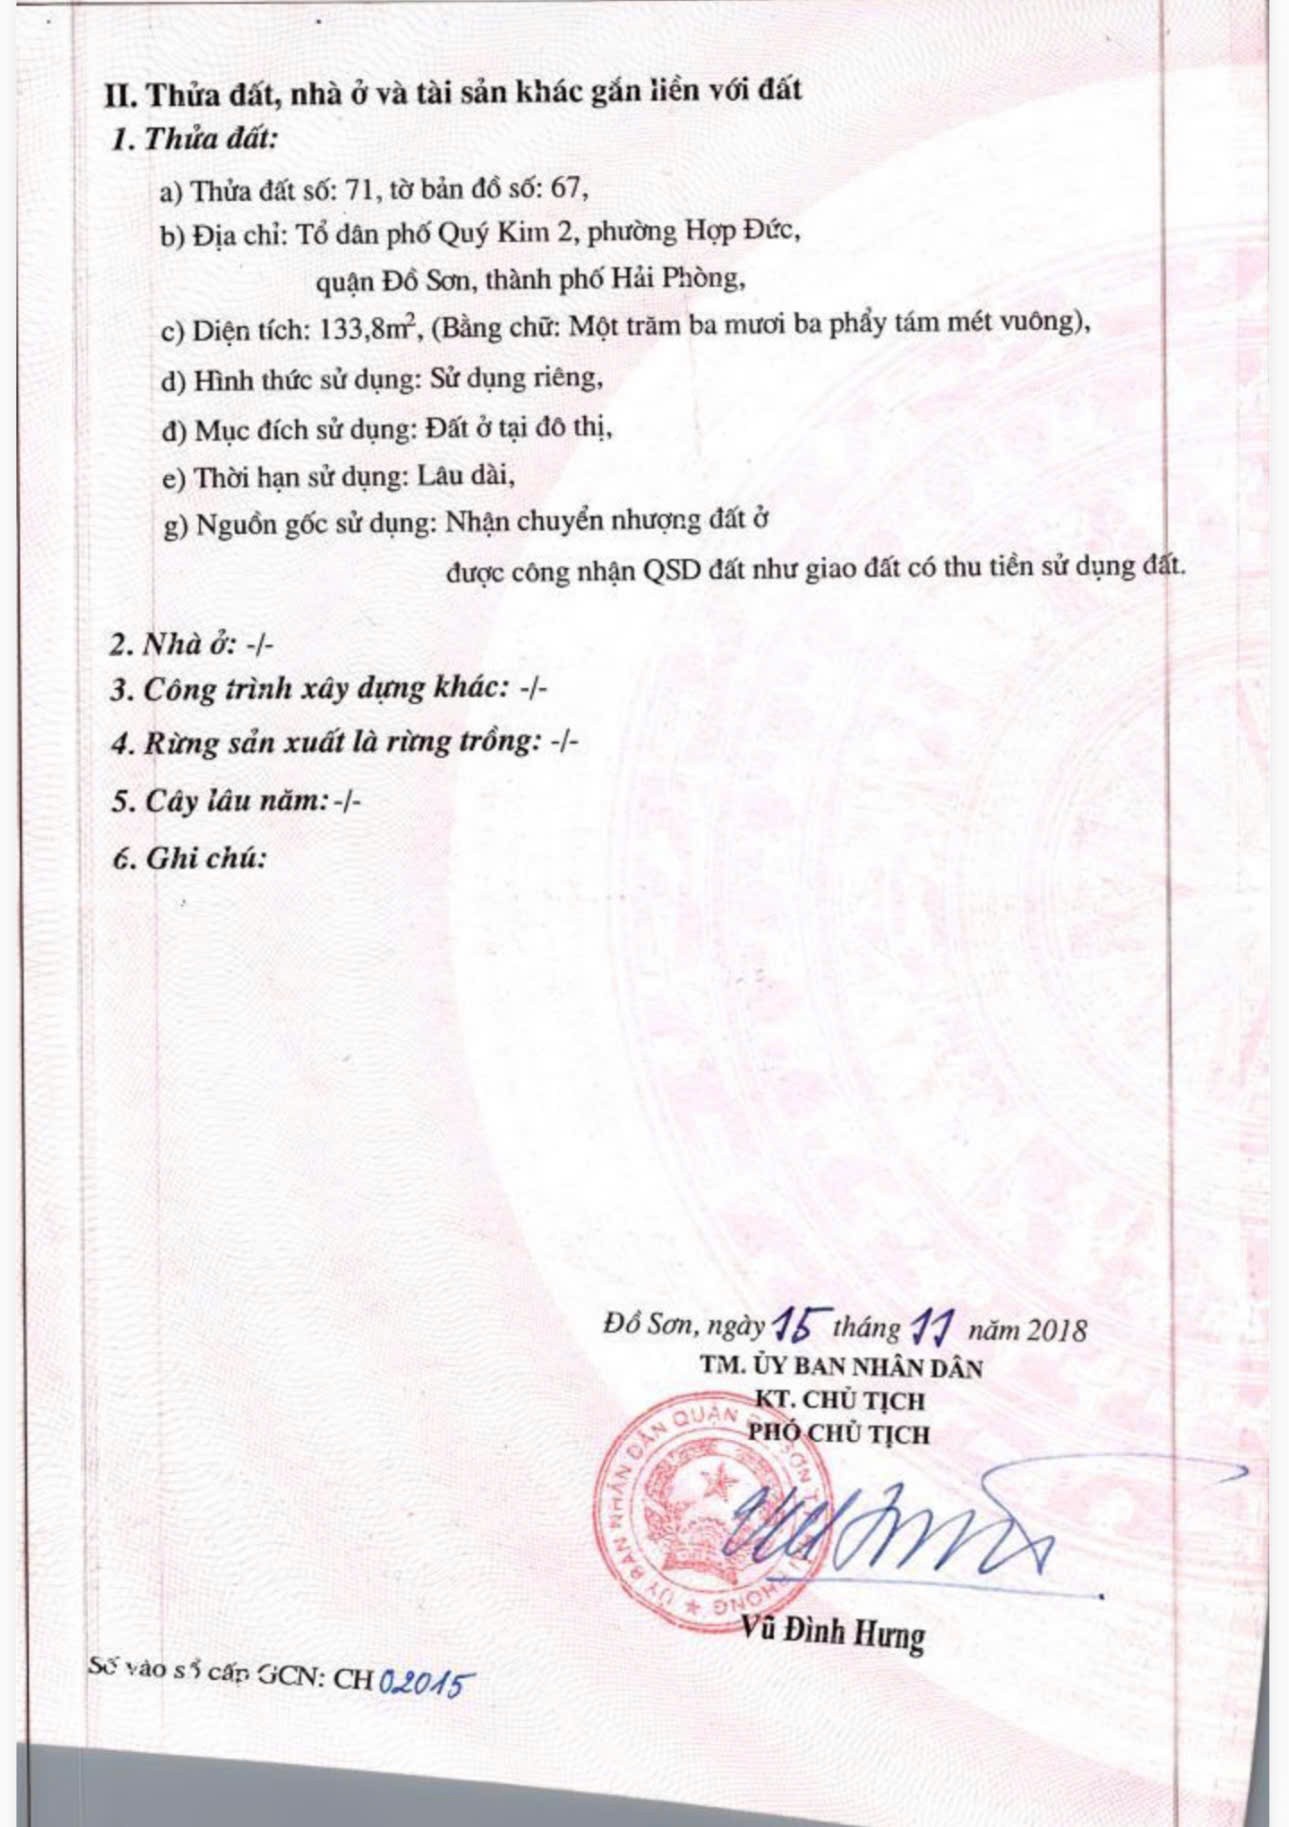 II. Thửa đất, nhà ở và tài sản khác gắn liền với đất
1. Thửa đất:
a) Thửa đất số: 71, tờ bản đồ số: 67,
b) Địa chỉ: Tổ dân phố Quý Kim 2, phường Hợp Đức,
quận Đồ Sơn, thành phố Hải Phòng,
c) Diện tích: 133,8m², (Bằng chữ: Một trăm ba mươi ba phẩy tám mét vuông),
d) Hình thức sử dụng: Sử dụng riêng,
đ) Mục đích sử dụng: Đất ở tại đô thị,
e) Thời hạn sử dụng: Lâu dài,
g) Nguồn gốc sử dụng: Nhận chuyển nhượng đất ở
được công nhận QSD đất như giao đất có thu tiền sử dụng đất.
2. Nhà ở: -/-
3. Công trình xây dựng khác: -/-
4. Rừng sản xuất là rừng trồng: -/-
5. Cây lâu năm: -/-
6. Ghi chú:
Đồ Sơn, ngày 15 tháng 11 năm 2018
TM. ỦY BAN NHÂN DÂN
KT. CHỦ TỊCH
PHÓ CHỦ TỊCH
ỦY BAN NHÂN DÂN QUẬN SƠN PHÒNG
Vũ Đình Hưng
Số vào sổ cấp GCN: CH 02015